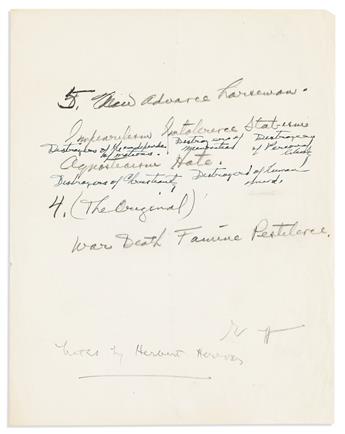 5. New advance horseman.
Imperialism Intolerance Statisme
Destroyers of Independence Destroyers of Destroyers
of nations. Minorities of Personal
Agnosticism Hate.
Destroyers of Christianity Destroyers of human
4. (The Original)
War Death Famine Pestilence.
Notes by Herbert Hoover